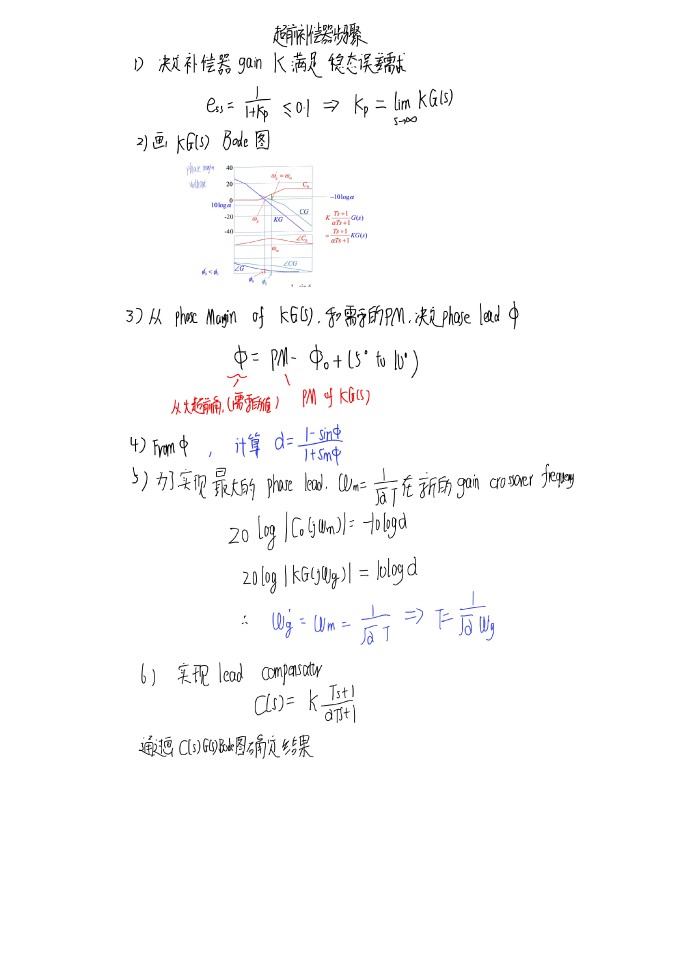 超前补偿器步骤
1) 决定补偿器 gain K 满足 稳态误差需求
e_ss = 1/(1+Kp) ≤ 0.1 ⇒ Kp = lim_{s→∞} KG(s)
2) 画 KG(s) Bode 图
phase margin
40
20
0
10logα
-20
-40
ω'g = ωm
C0
-10logα
CG
KG
ωg
K (Ts+1)/(αTs+1) G(s)
= (Ts+1)/(αTs+1) KG(s)
∠C0
ωm
∠CG
∠G
3) 从 phase Margin of KG(s), 和需求的PM, 决定 phase lead ϕ
ϕ = PM - ϕ0 + (5° to 10°)
超前角, (需求的值) PM of KG(s)
4) From ϕ , 计算 α = (1-sinϕ)/(1+sinϕ)
5) 为了实现最大的 phase lead, ωm = 1/(√α T) 在新的 gain crossover frequency
20 log |C0(jωm)| = -10logα
20 log |KG(jωg)| = 10logα
∴ ωg' = ωm = 1/(√α T) ⇒ T = 1/(√α ωg)
6) 实现 lead compensator
C(s) = K (Ts+1)/(αTs+1)
通过画 C(s)G(s) Bode图确定结果